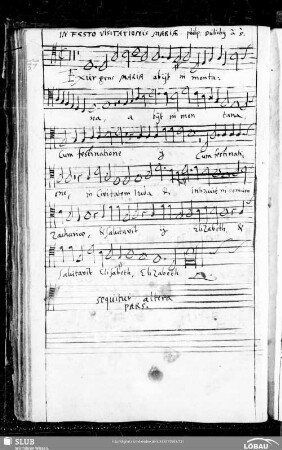 IN FESTO VISITATIONIS MARIAE. philip. Dulichij à 8.
Exurgens MARIA abijt in monta:
na, a bijt in mon tana
Cum festinatione ij Cum festinati,
one, in Civitatem Iuda &, intravit in domum
Zachariae, & salutavit ij Elizabeth, &
Salutavit Elisabeth, Elizabeth.
sequitur altera
PARS.
SLUB
LÖBAU